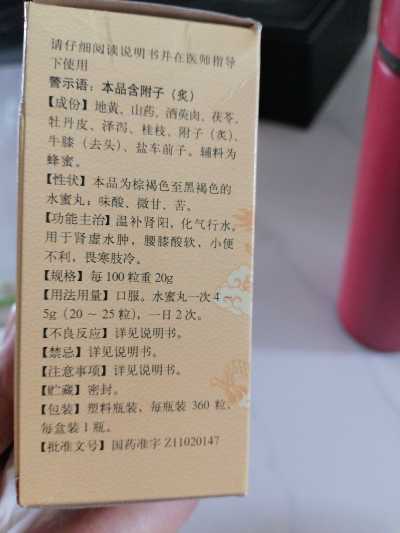 请仔细阅读说明书并在医师指导
下使用
警示语：本品含附子（炙）
【成份】地黄、山药、酒萸肉、茯苓、
牡丹皮、泽泻、桂枝、附子（炙）、
牛膝（去头）、盐车前子。辅料为
蜂蜜。
【性状】本品为棕褐色至黑褐色的
水蜜丸；味酸、微甘、苦。
【功能主治】温补肾阳，化气行水。
用于肾虚水肿，腰膝酸软，小便
不利，畏寒肢冷。
【规格】每100粒重20g
【用法用量】口服。水蜜丸一次4
5g（20～25粒），一日2次。
【不良反应】详见说明书。
【禁忌】详见说明书。
【注意事项】详见说明书。
【贮藏】密封。
【包装】塑料瓶装，每瓶装360粒，
每盒装1瓶。
【批准文号】国药准字Z11020147